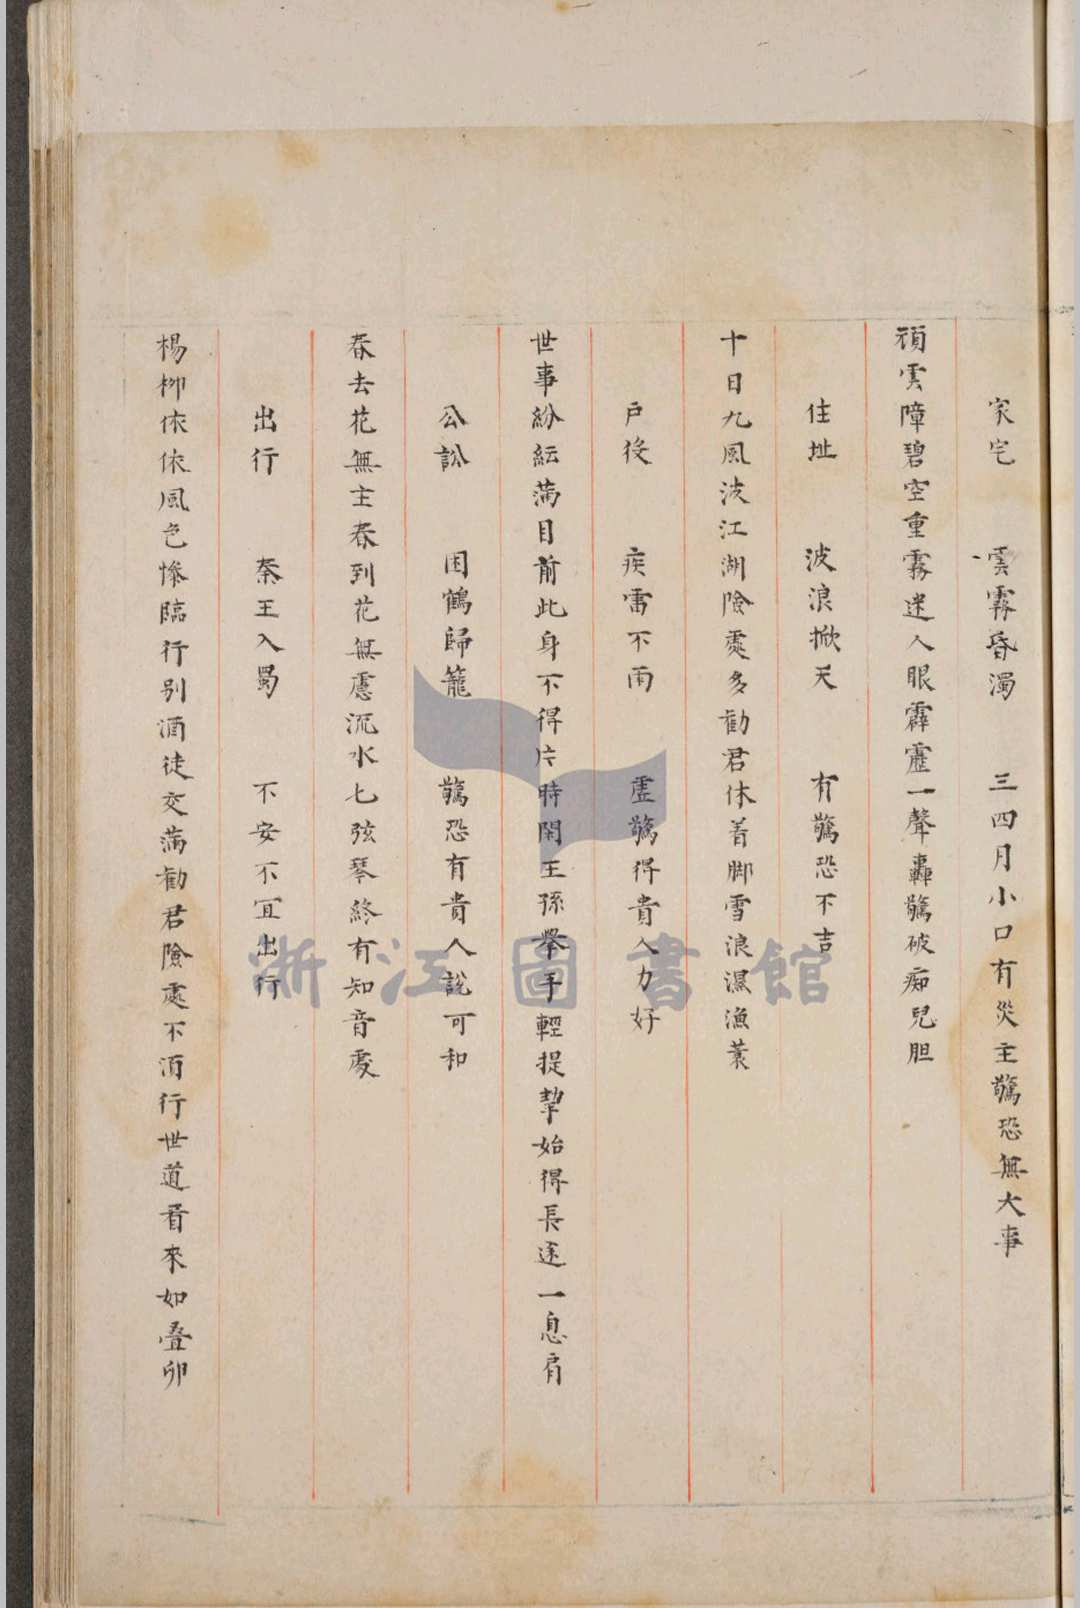 家宅　雲霧昏濁　三四月小口有災主驚恐無大事
頑雲障碧空重霧迷人眼霹靂一聲轟驚破痴兒胆
住址　波浪掀天　有驚恐不吉
十日九風波江湖險處多勸君休着脚雪浪濕漁蓑
戸役　疾雷不雨　虛驚得貴人力好
世事紛紜满目前此身不得片時閑王孫舉手輕提挈始得長途一息肩
公訟　困鶴歸籠　驚恐有貴人說可和
春去花無主春到花無慮流水七弦琴終有知音處
出行　秦王入蜀　不安不宜出行
楊柳依依風色慘臨行别酒徒交满勸君險處不須行世道看來如疊卵
浙江圖書館